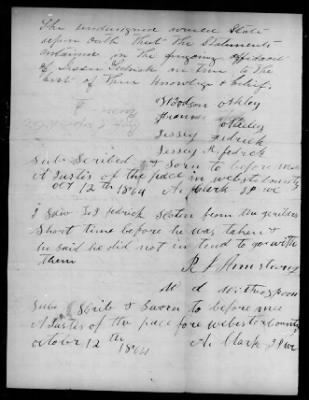 The undersigned would State
upon oath that the Statements
contained in the foregoing affidavit
of Jessee Fedrick are true to the
best of their knowledge & belief.
Woodson Ashley
Frances Ashley
Jessey Fedrick
Jessey R fedrick
Sub Scribed & Sworn to before me
A Justis of the pace in webster County
oct 12th 1864 A. Clark JP wc
I Saw fedrick
Short time before he was taken &
he said he did not in tend to go with
them
R S Armstrong
W d Witherspoon
Subs Skrib & Sworn to before me
A Justis of the pace fore webster County
october 12th 1864 A. Clark JP wc